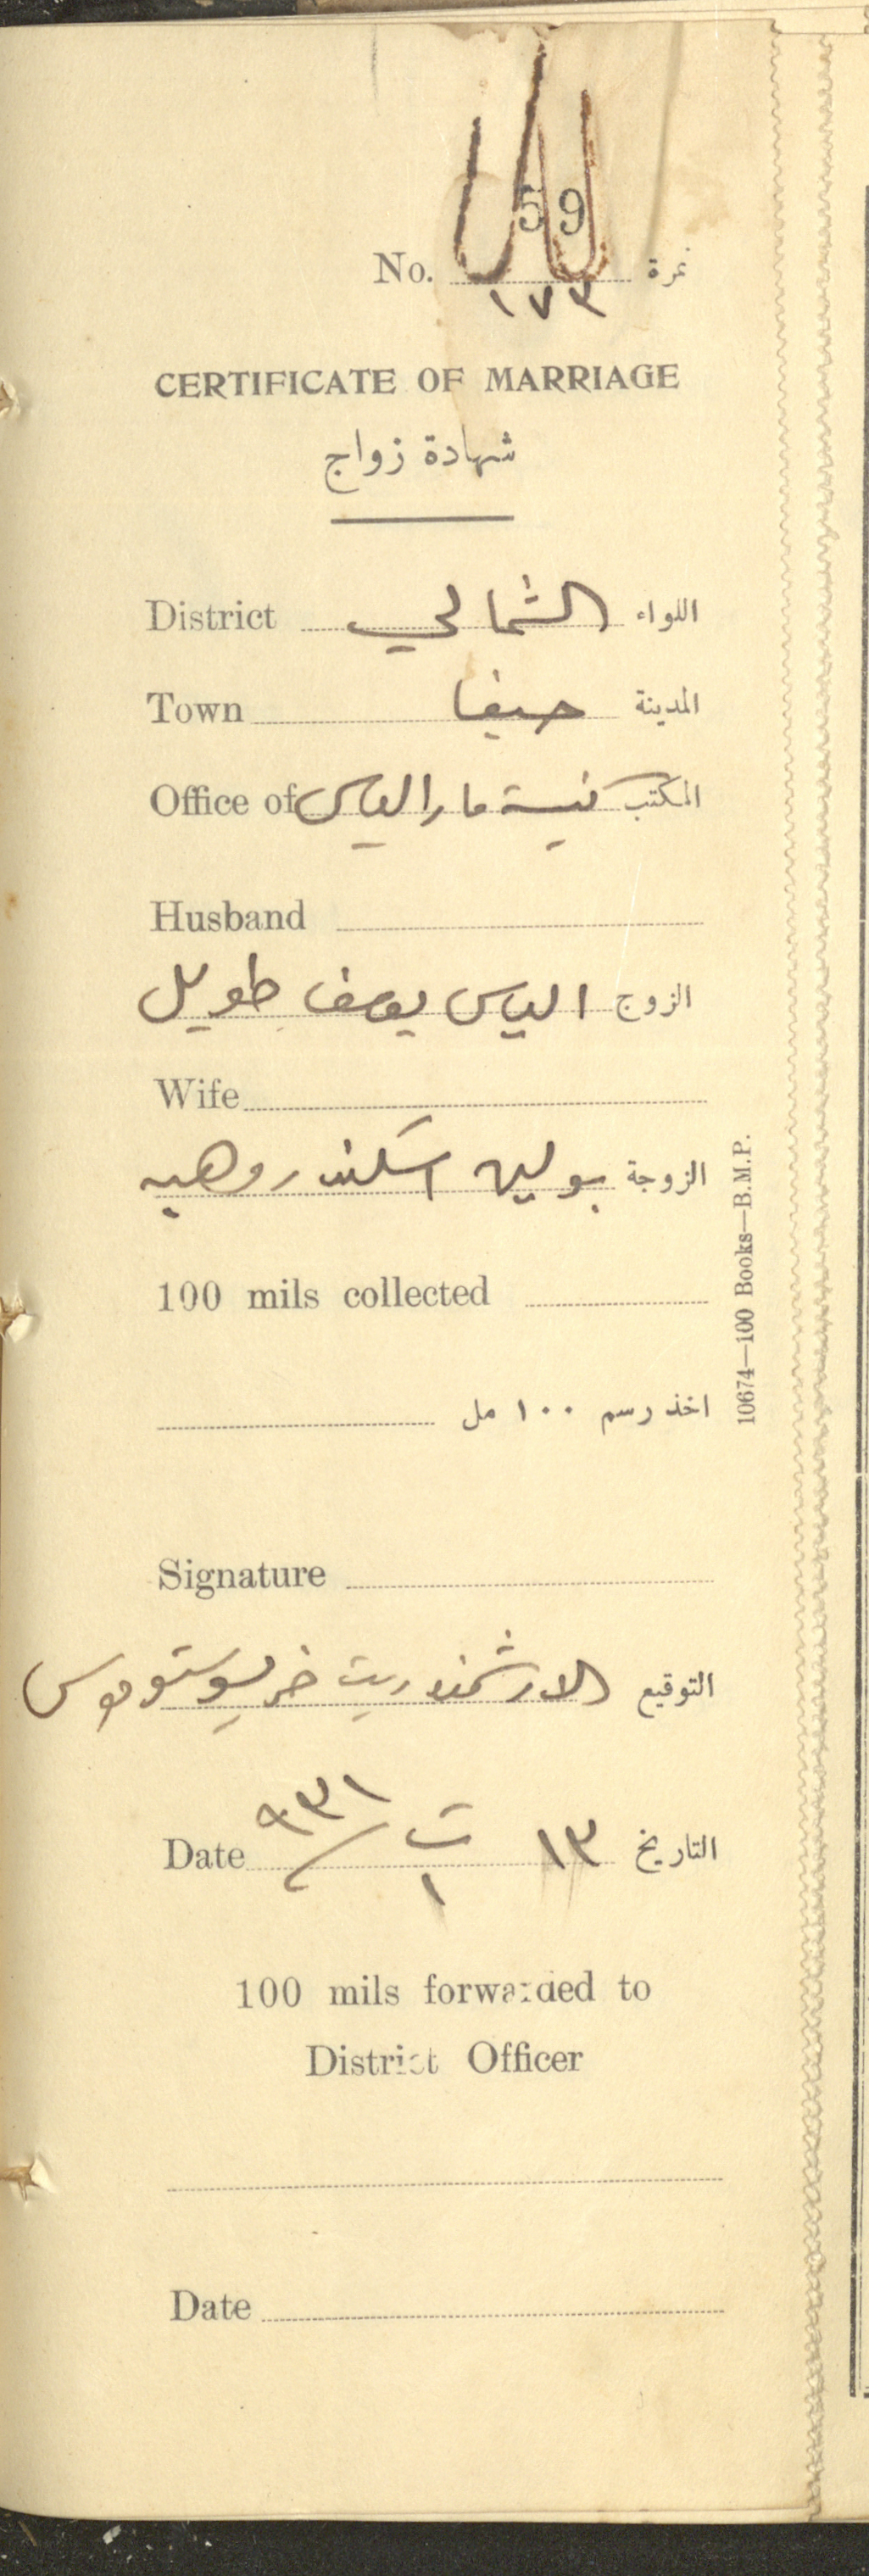 59
No. نمرة
١٧٣
CERTIFICATE OF MARRIAGE
شهادة زواج
District الشمالي اللواء
Town حيفا المدينة
Office of كنيسة مار الياس المكتب
Husband
الزوج الياس يوسف طويل
Wife
الزوجة بولين اسكندر وهبه
100 mils collected
اخذ رسم ١٠٠ مل
Signature
التوقيع الارشمندريت خريسوستوموس
Date ١٣ ت ١ / ٩٣١ التاريخ
100 mils forwarded to
District Officer
Date
10674—100 Books—B.M.P.